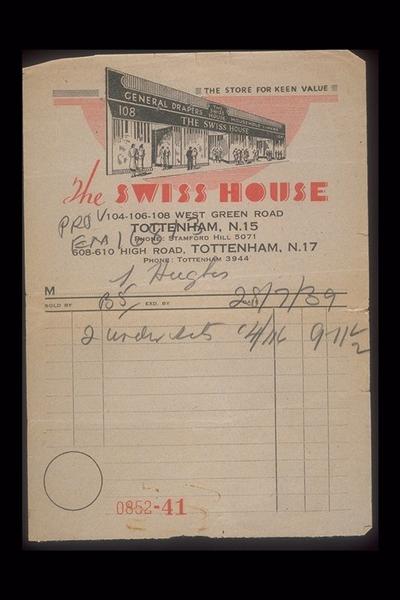 THE STORE FOR KEEN VALUE
GENERAL DRAPERS THE SWISS HOUSE HOUSEHOLD LINENS
108 THE SWISS HOUSE
The SWISS HOUSE
104-106-108 WEST GREEN ROAD
TOTTENHAM, N.15
PHONE: STAMFORD HILL 5071
608-610 HIGH ROAD, TOTTENHAM, N.17
PHONE: TOTTENHAM 3944
PROV
Hughes
M
SOLD BY EXD. BY 28/7/39
2 9-11½
0852-41